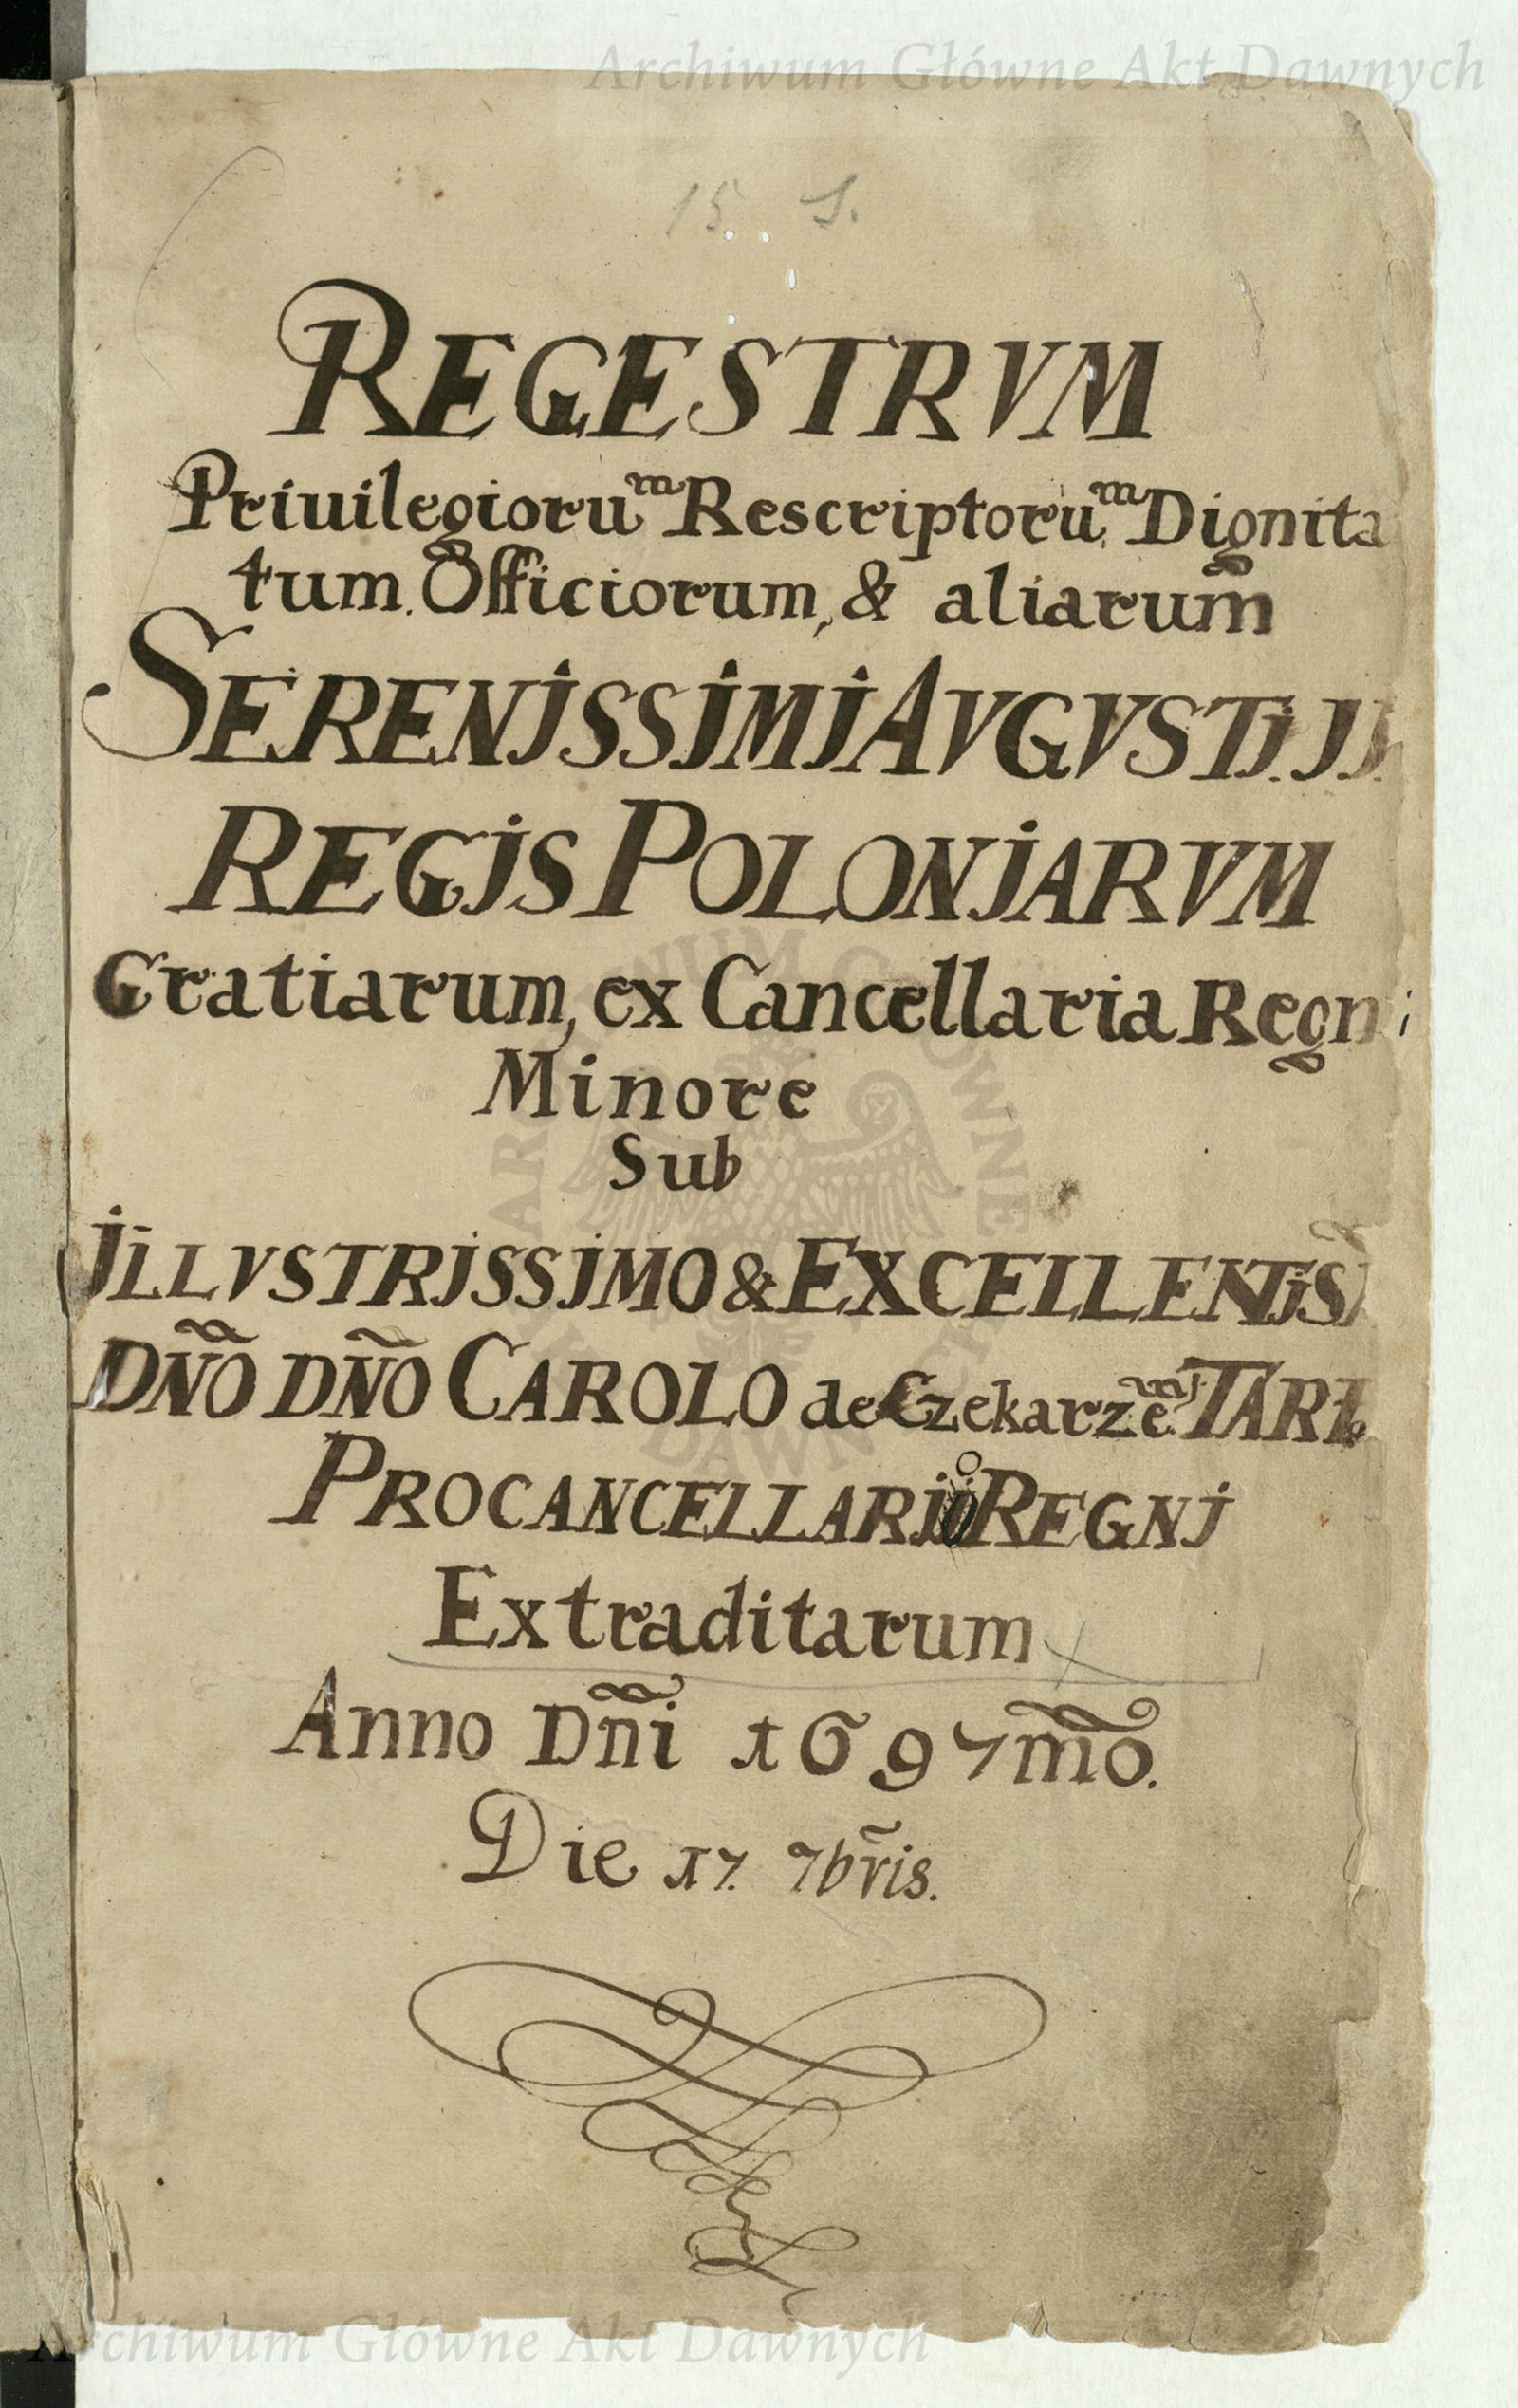 Archiwum Główne Akt Dawnych
15. S.
REGESTRVM
Priuilegioruᵐ Rescriptoruᵐ Dignita
tum. Officiorum, & aliarum
SERENJSSJMJ AVGVSTJ. JJ.
REGJS POLONJARVM
Gratiarum, ex Cancellaria Regni
Minore
Sub
JLLVSTRJSSJMO & EXCELLENTJS
DÑO DÑO CAROLO de Czekarzeᵐ TARŁ
PROCANCELLARJO REGNJ
Extraditarum
Anno Dñi 1697mo.
Die 17. 7br̃is.
Archiwum Główne Akt Dawnych